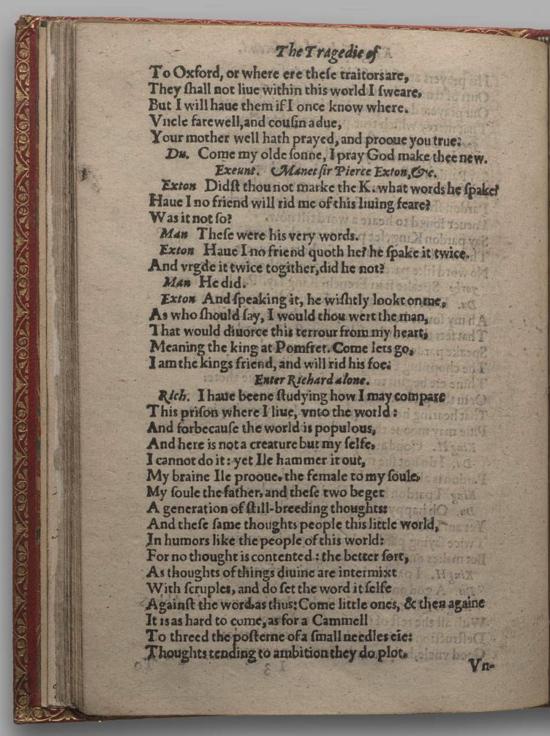 The Tragedie of
To Oxford, or where ere theſe traitors are,
They ſhall not liue within this world I ſweare,
But I will haue them if I once know where.
Vncle farewell, and couſin adue,
Your mother well hath prayed, and prooue you true:
Du. Come my olde ſonne, I pray God make thee new.
Exeunt. Manet ſir Pierce Exton, &c.
Exton Didſt thou not marke the K. what words he ſpake?
Haue I no friend will rid me of this liuing feare?
Was it not ſo?
Man Theſe were his very words.
Exton Haue I no friend quoth he? he ſpake it twice,
And vrgde it twice togither, did he not?
Man He did.
Exton And ſpeaking it, he wiſhtly lookt on me,
As who ſhould ſay, I would thou wert the man,
That would diuorce this terrour from my heart,
Meaning the king at Pomfret. Come lets go,
I am the kings friend, and will rid his foe.
Enter Richard alone.
Rich. I haue beene ſtudying how I may compare
This priſon where I liue, vnto the world:
And forbecauſe the world is populous,
And here is not a creature but my ſelfe,
I cannot do it: yet Ile hammer it out,
My braine Ile prooue, the female to my ſoule,
My ſoule the father, and theſe two beget
A generation of ſtill-breeding thoughts:
And theſe ſame thoughts people this little world,
In humors like the people of this world:
For no thought is contented: the better ſort,
As thoughts of things diuine are intermixt
With ſcruples, and do ſet the word it ſelfe
Againſt the word, as thus: Come little ones, & then againe
It is as hard to come, as for a Cammell
To threed the poſterne of a ſmall needles eie:
Thoughts tending to ambition they do plot,
Vn-